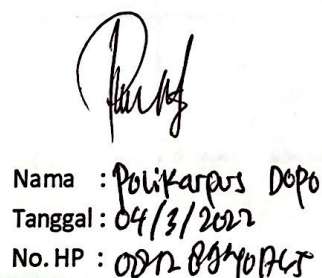 Nama : Polikarpus Dopo
Tanggal : 04/3/2022
No. HP :